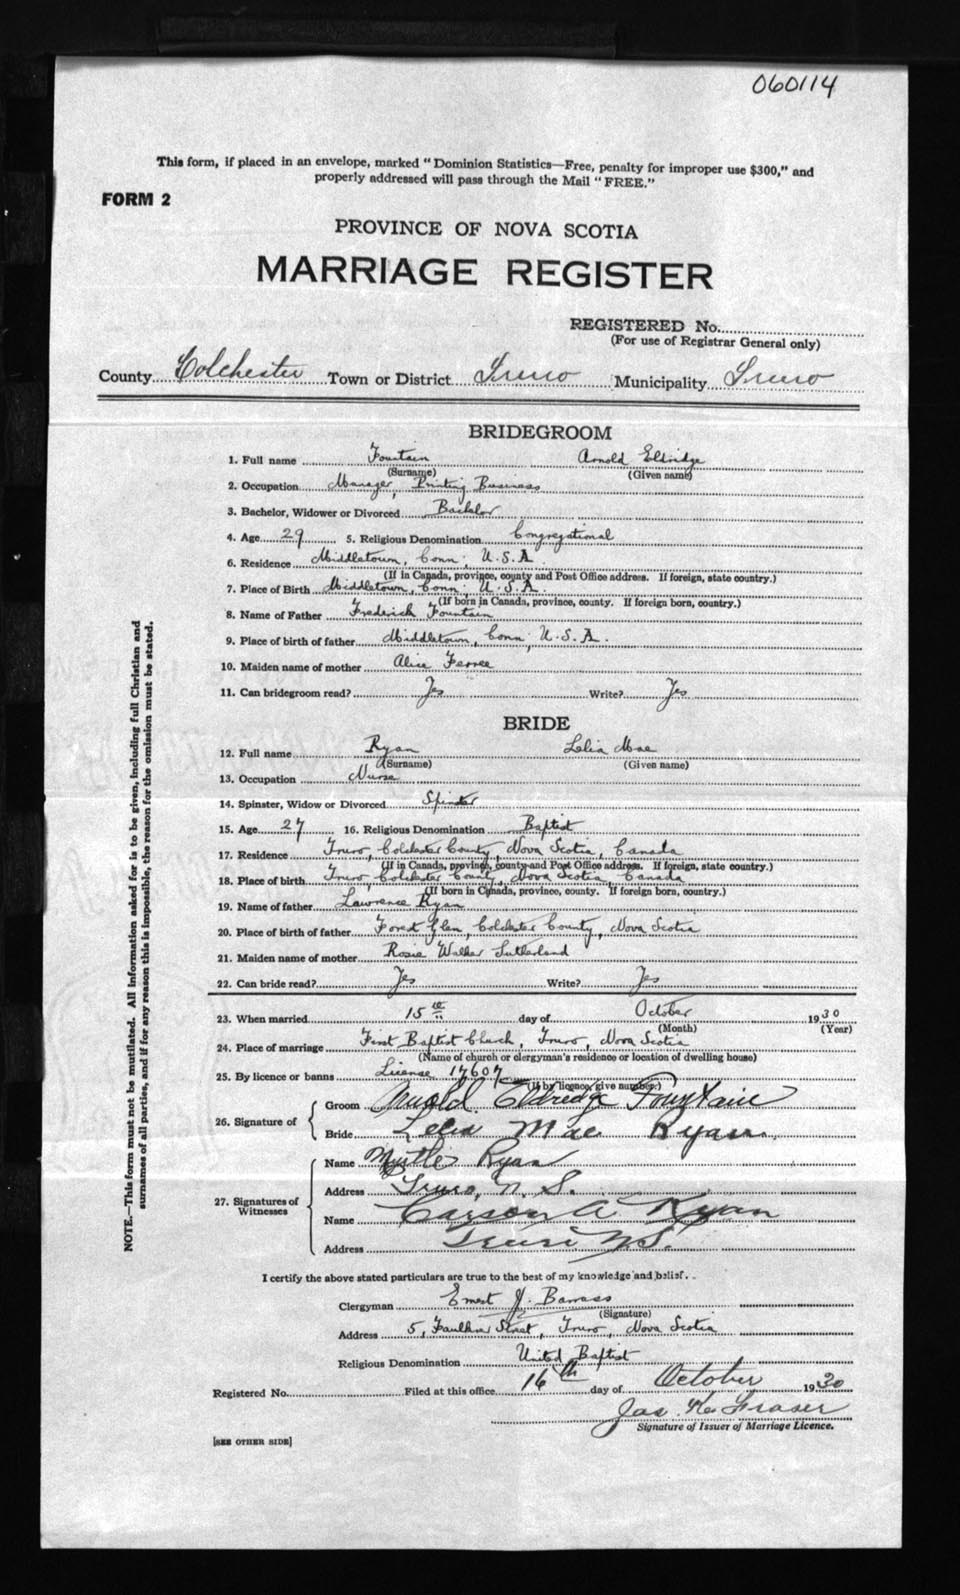 060114
This form, if placed in an envelope, marked "Dominion Statistics—Free, penalty for improper use $300," and
properly addressed will pass through the Mail "FREE."
FORM 2
PROVINCE OF NOVA SCOTIA
MARRIAGE REGISTER
REGISTERED No.
(For use of Registrar General only)
County Colchester Town or District Truro Municipality Truro
BRIDEGROOM
1. Full name Fountain Arnold Eldridge
(Surname) (Given name)
2. Occupation Manager, Printing Business
3. Bachelor, Widower or Divorced Bachelor
4. Age 29 5. Religious Denomination Congregational
6. Residence Middletown, Conn; U.S.A.
(If in Canada, province, county and Post Office address. If foreign, state country.)
7. Place of Birth Middletown, Conn; U.S.A.
(If born in Canada, province, county. If foreign born, country.)
8. Name of Father Frederick Fountain
9. Place of birth of father Middletown, Conn, U.S.A.
10. Maiden name of mother Alice Ferree
11. Can bridegroom read? Yes Write? Yes
BRIDE
12. Full name Ryan Lelia Mae
(Surname) (Given name)
13. Occupation Nurse
14. Spinster, Widow or Divorced Spinster
15. Age 27 16. Religious Denomination Baptist
17. Residence Truro, Colchester County, Nova Scotia, Canada
(If in Canada, province, county and Post Office address. If foreign, state country.)
18. Place of birth Truro, Colchester County, Nova Scotia, Canada
(If born in Canada, province, county. If foreign born, country.)
19. Name of father Lawrence Ryan
20. Place of birth of father Forest Glen, Colchester County, Nova Scotia
21. Maiden name of mother Rosie Walker Sutherland
22. Can bride read? Yes Write? Yes
23. When married 15th day of October 1930
(Month) (Year)
24. Place of marriage First Baptist Church, Truro, Nova Scotia
(Name of church or clergyman's residence or location of dwelling house)
25. By licence or banns License 17607
(If by licence, give number.)
26. Signature of Groom Arnold Eldredge Fountain
Bride Lelia Mae Ryan
27. Signatures of Witnesses Name Myrtle Ryan
Address Truro, N.S.
Name Carson A Ryan
Address Truro N.S.
I certify the above stated particulars are true to the best of my knowledge and belief.
Clergyman Ernest J. Barrass
(Signature)
Address 5, Faulkner Street, Truro, Nova Scotia
Religious Denomination United Baptist
Registered No. Filed at this office 16th day of October 1930
Jas. K. Fraser
Signature of Issuer of Marriage Licence.
[SEE OTHER SIDE]
NOTE.—This form must not be mutilated. All information asked for is to be given, including full Christian and
surnames of all parties, and if for any reason this is impossible, the reason for the omission must be stated.